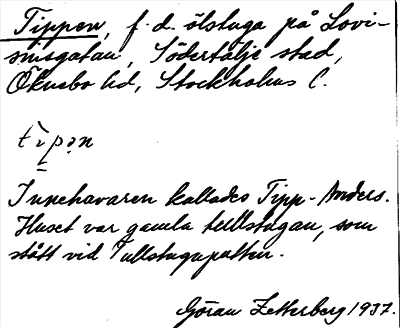 Tippen, f. d. ölstuga på Lovi-
sinsgatan, Södertälje stad,
Öknebo hd, Stockholms l.
Innehavaren kallades Tipp-Anders.
Huset var gamla tullstugan, som
stått vid
Göran Zetterberg 1937.